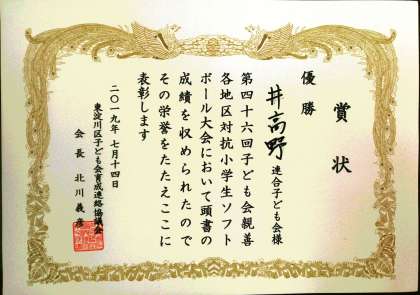 賞状
優勝
井高野 連合子ども会様
第四十六回子ども会親善
各地区対抗小学生ソフト
ボール大会において頭書の
成績を収められたので
その栄誉をたたえここに
表彰します
二〇一九年 七月十四日
東淀川区子ども会育成連絡協議会
会長 北川義彦